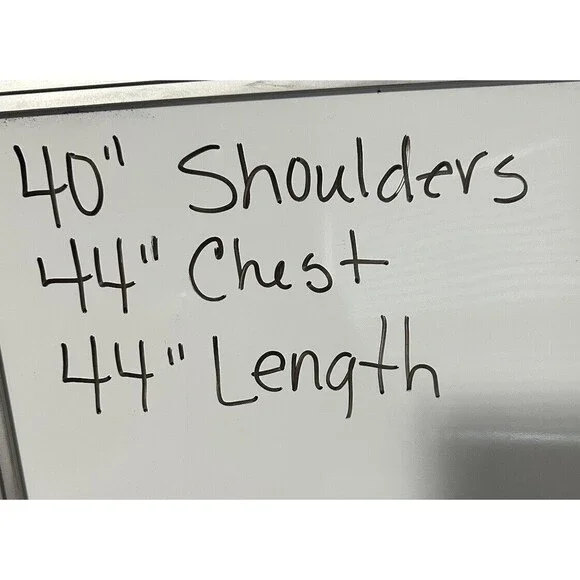 40" Shoulders
44" Chest
44" Length